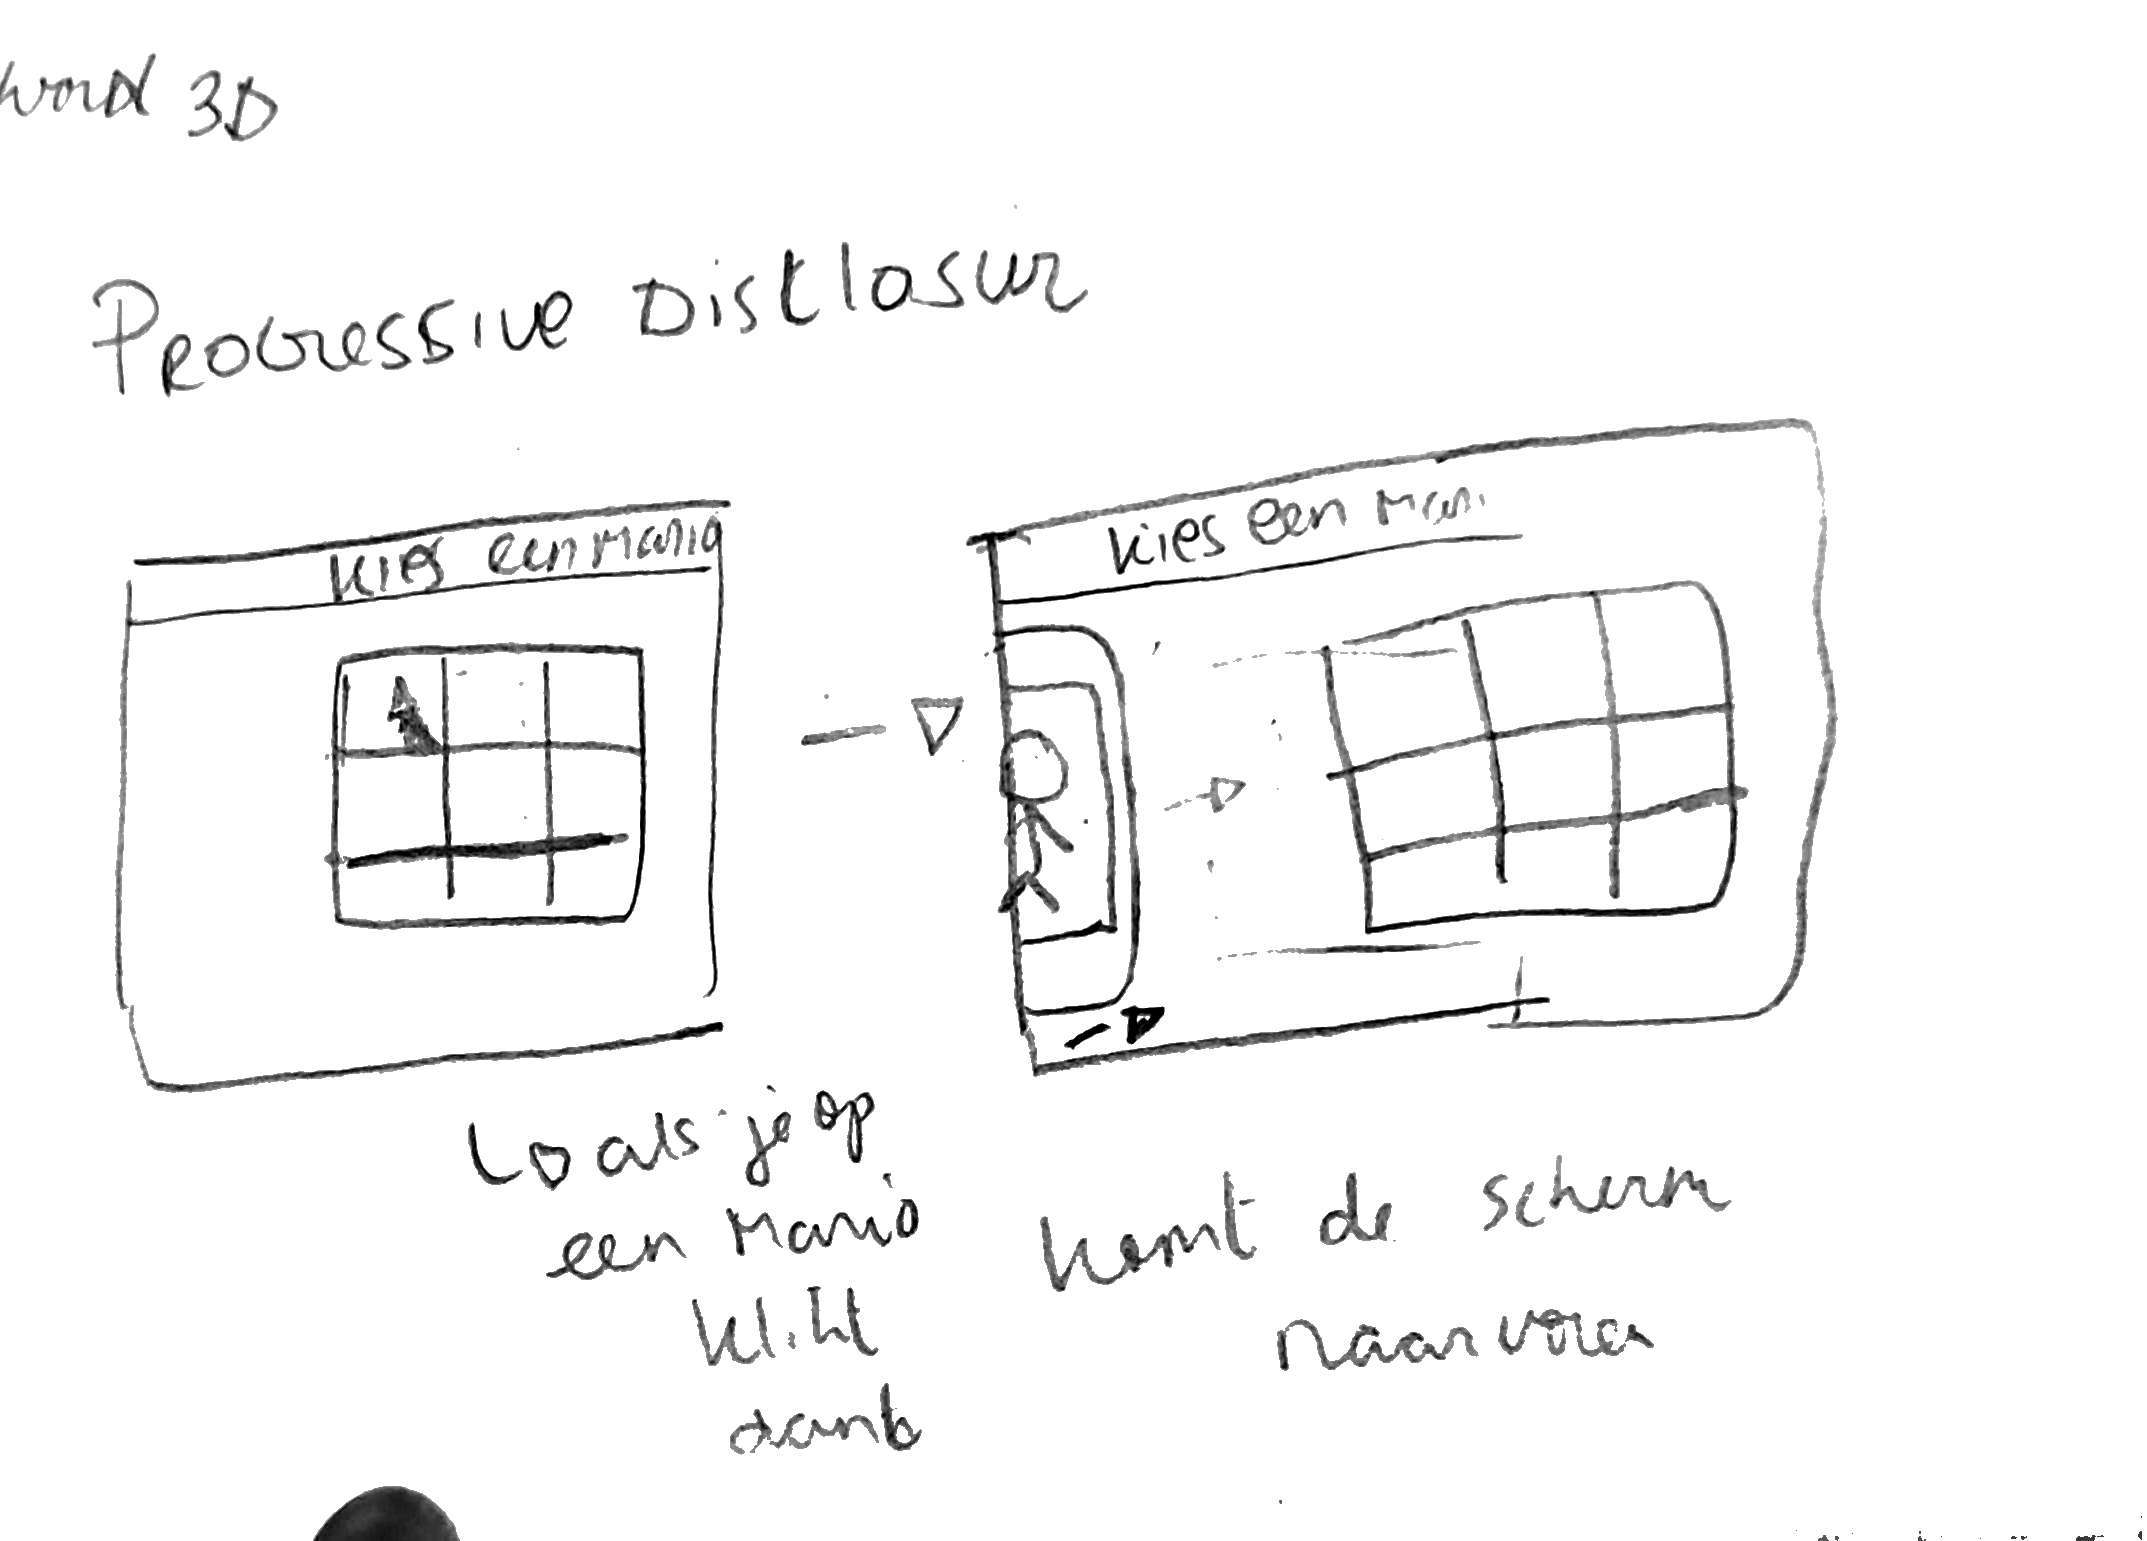 word 3D
Progressive Disclosur
Kies een Mario
Kies een Mari
als je op
een Mario
klikt
komt de scherm
naar voren